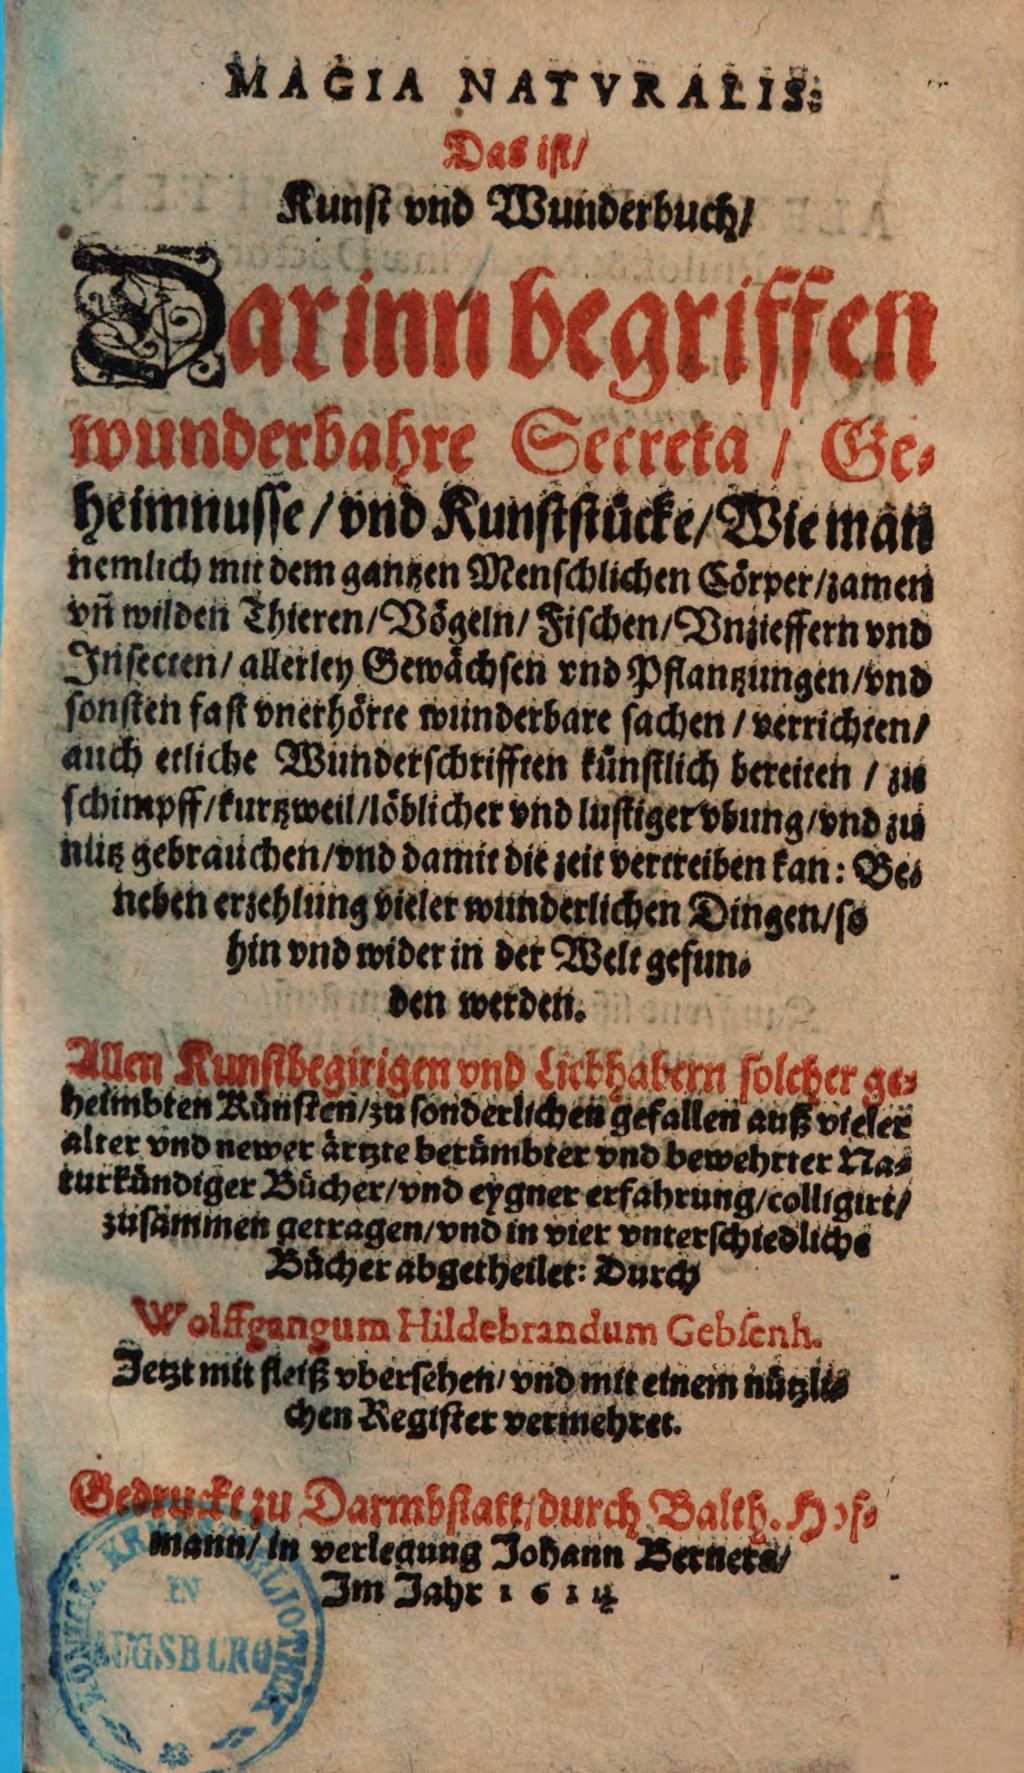 MAGIA NATVRALIS:
Das ist/
Kunst vnd Wunderbuch/
Darinn begriffen
wunderbahre Secreta / Ge-
heimnusse/vnd Kunststücke/Wie man
nemlich mit dem gantzen Menschlichen Cörper/zamen
vñ wilden Thieren/Vögeln/Fischen/Vnzieffern vnd
Insecten/allerley Gewächsen vnd Pflantzungen/vnd
sonsten fast vnerhörte wunderbare sachen/verrichten/
auch etliche Wunderschrifften künstlich bereiten / zu
schimpff/kurtzweil/löblicher vnd lustiger vbung/vnd zu
nütz gebrauchen/vnd damit die zeit vertreiben kan: Be-
neben erzehlung vieler wunderlichen Dingen/so
hin vnd wider in der Welt gefun-
den werden.
Allen Kunstbegirigen vnd Liebhabern solcher ge-
heimbten Künsten/zu sonderlichen gefallen auß vieler
alter vnd newer ärtzte berümbter vnd bewehrter Na-
turkündiger Bücher/vnd eygner erfahrung/colligirt/
zusammen getragen/vnd in vier vnterschiedliche
Bücher abgetheilet: Durch
Wolffgangum Hildebrandum Gebsenh.
Jetzt mit fleiß vbersehen/vnd mit einem nützli-
chen Register vermehret.
Gedruckt zu Darmbstatt/durch Balth. Hof-
mann/in verlegung Johann Berners/
Im Jahr 1614
KÖNIGL. KREIS BIBLIOTHEK
IN
AUGSBURG